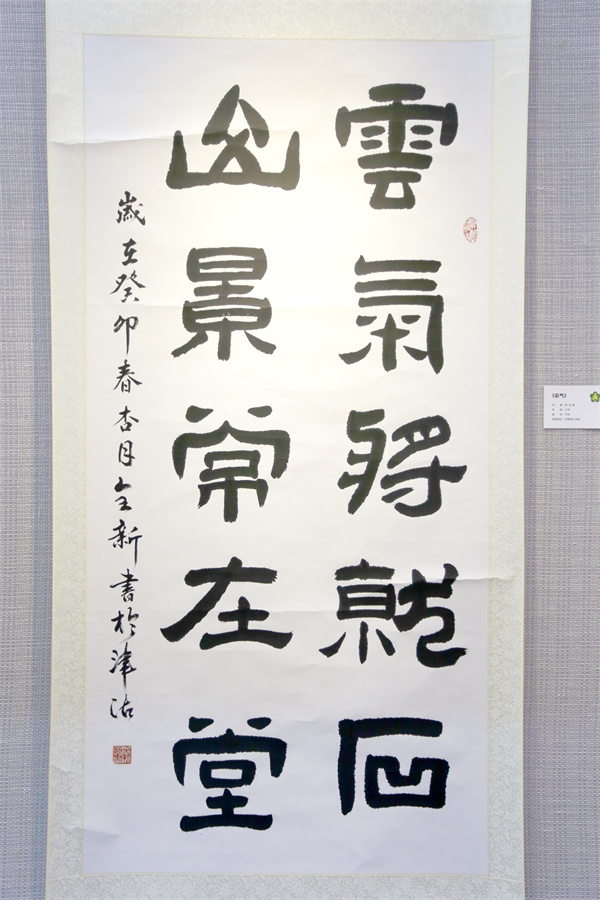 雲氣將就石
山景常在堂
歲在癸卯春杏月全新書於津沽
《云气》